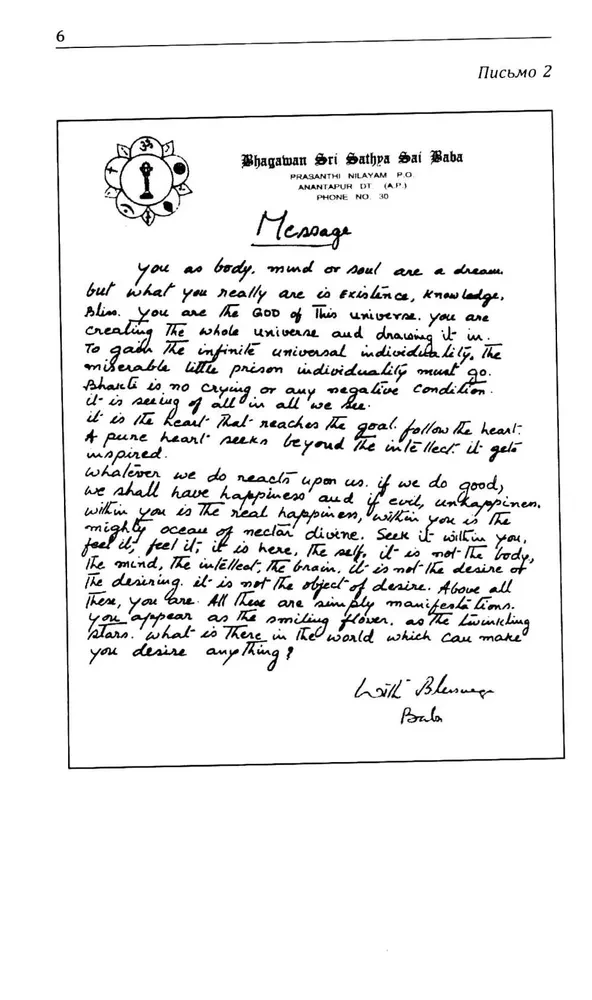 6
Письмо 2
ॐ
Bhagawan Sri Sathya Sai Baba
PRASANTHI NILAYAM P.O.
ANANTAPUR DT (A.P.)
PHONE NO. 30
Message
you as body, mind or soul are a dream.
but what you really are is Existence, Knowledge,
Bliss. you are the GOD of This universe. you are
creating The whole universe and drawing it in.
To gain The infinite universal individuality, The
miserable little prison individuality must go.
Bhakti is no crying or any negative condition.
it is seeing of all in all we see.
it is the heart That reaches the goal. follow the heart.
A pure heart seeks beyond the intellect. it gets
inspired.
whatever we do reacts upon us. if we do good,
we shall have happiness and if evil, unhappiness.
within you is the real happiness, within you is the
mighty ocean of nectar divine. Seek it within you,
feel it, feel it, it is here, the self, it is not the body,
the mind, the intellect, the brain. it is not the desire of
the desiring. it is not the object of desire. Above all
these, you are. All these are simply manifestations.
you appear as the smiling flower, as the twinkling
stars. what is There in the world which can make
you desire anything?
With Blessings
Baba